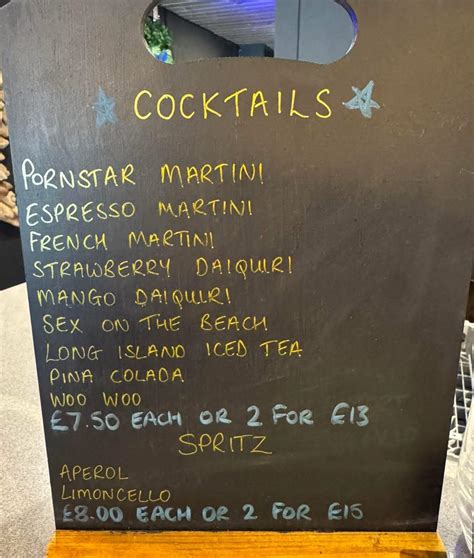 COCKTAILS
PORNSTAR MARTINI
ESPRESSO MARTINI
FRENCH MARTINI
STRAWBERRY DAIQUIRI
MANGO DAIQUIRI
SEX ON THE BEACH
LONG ISLAND ICED TEA
PINA COLADA
WOO WOO
£7.50 EACH OR 2 FOR £13
SPRITZ
APEROL
LIMONCELLO
£8.00 EACH OR 2 FOR £15